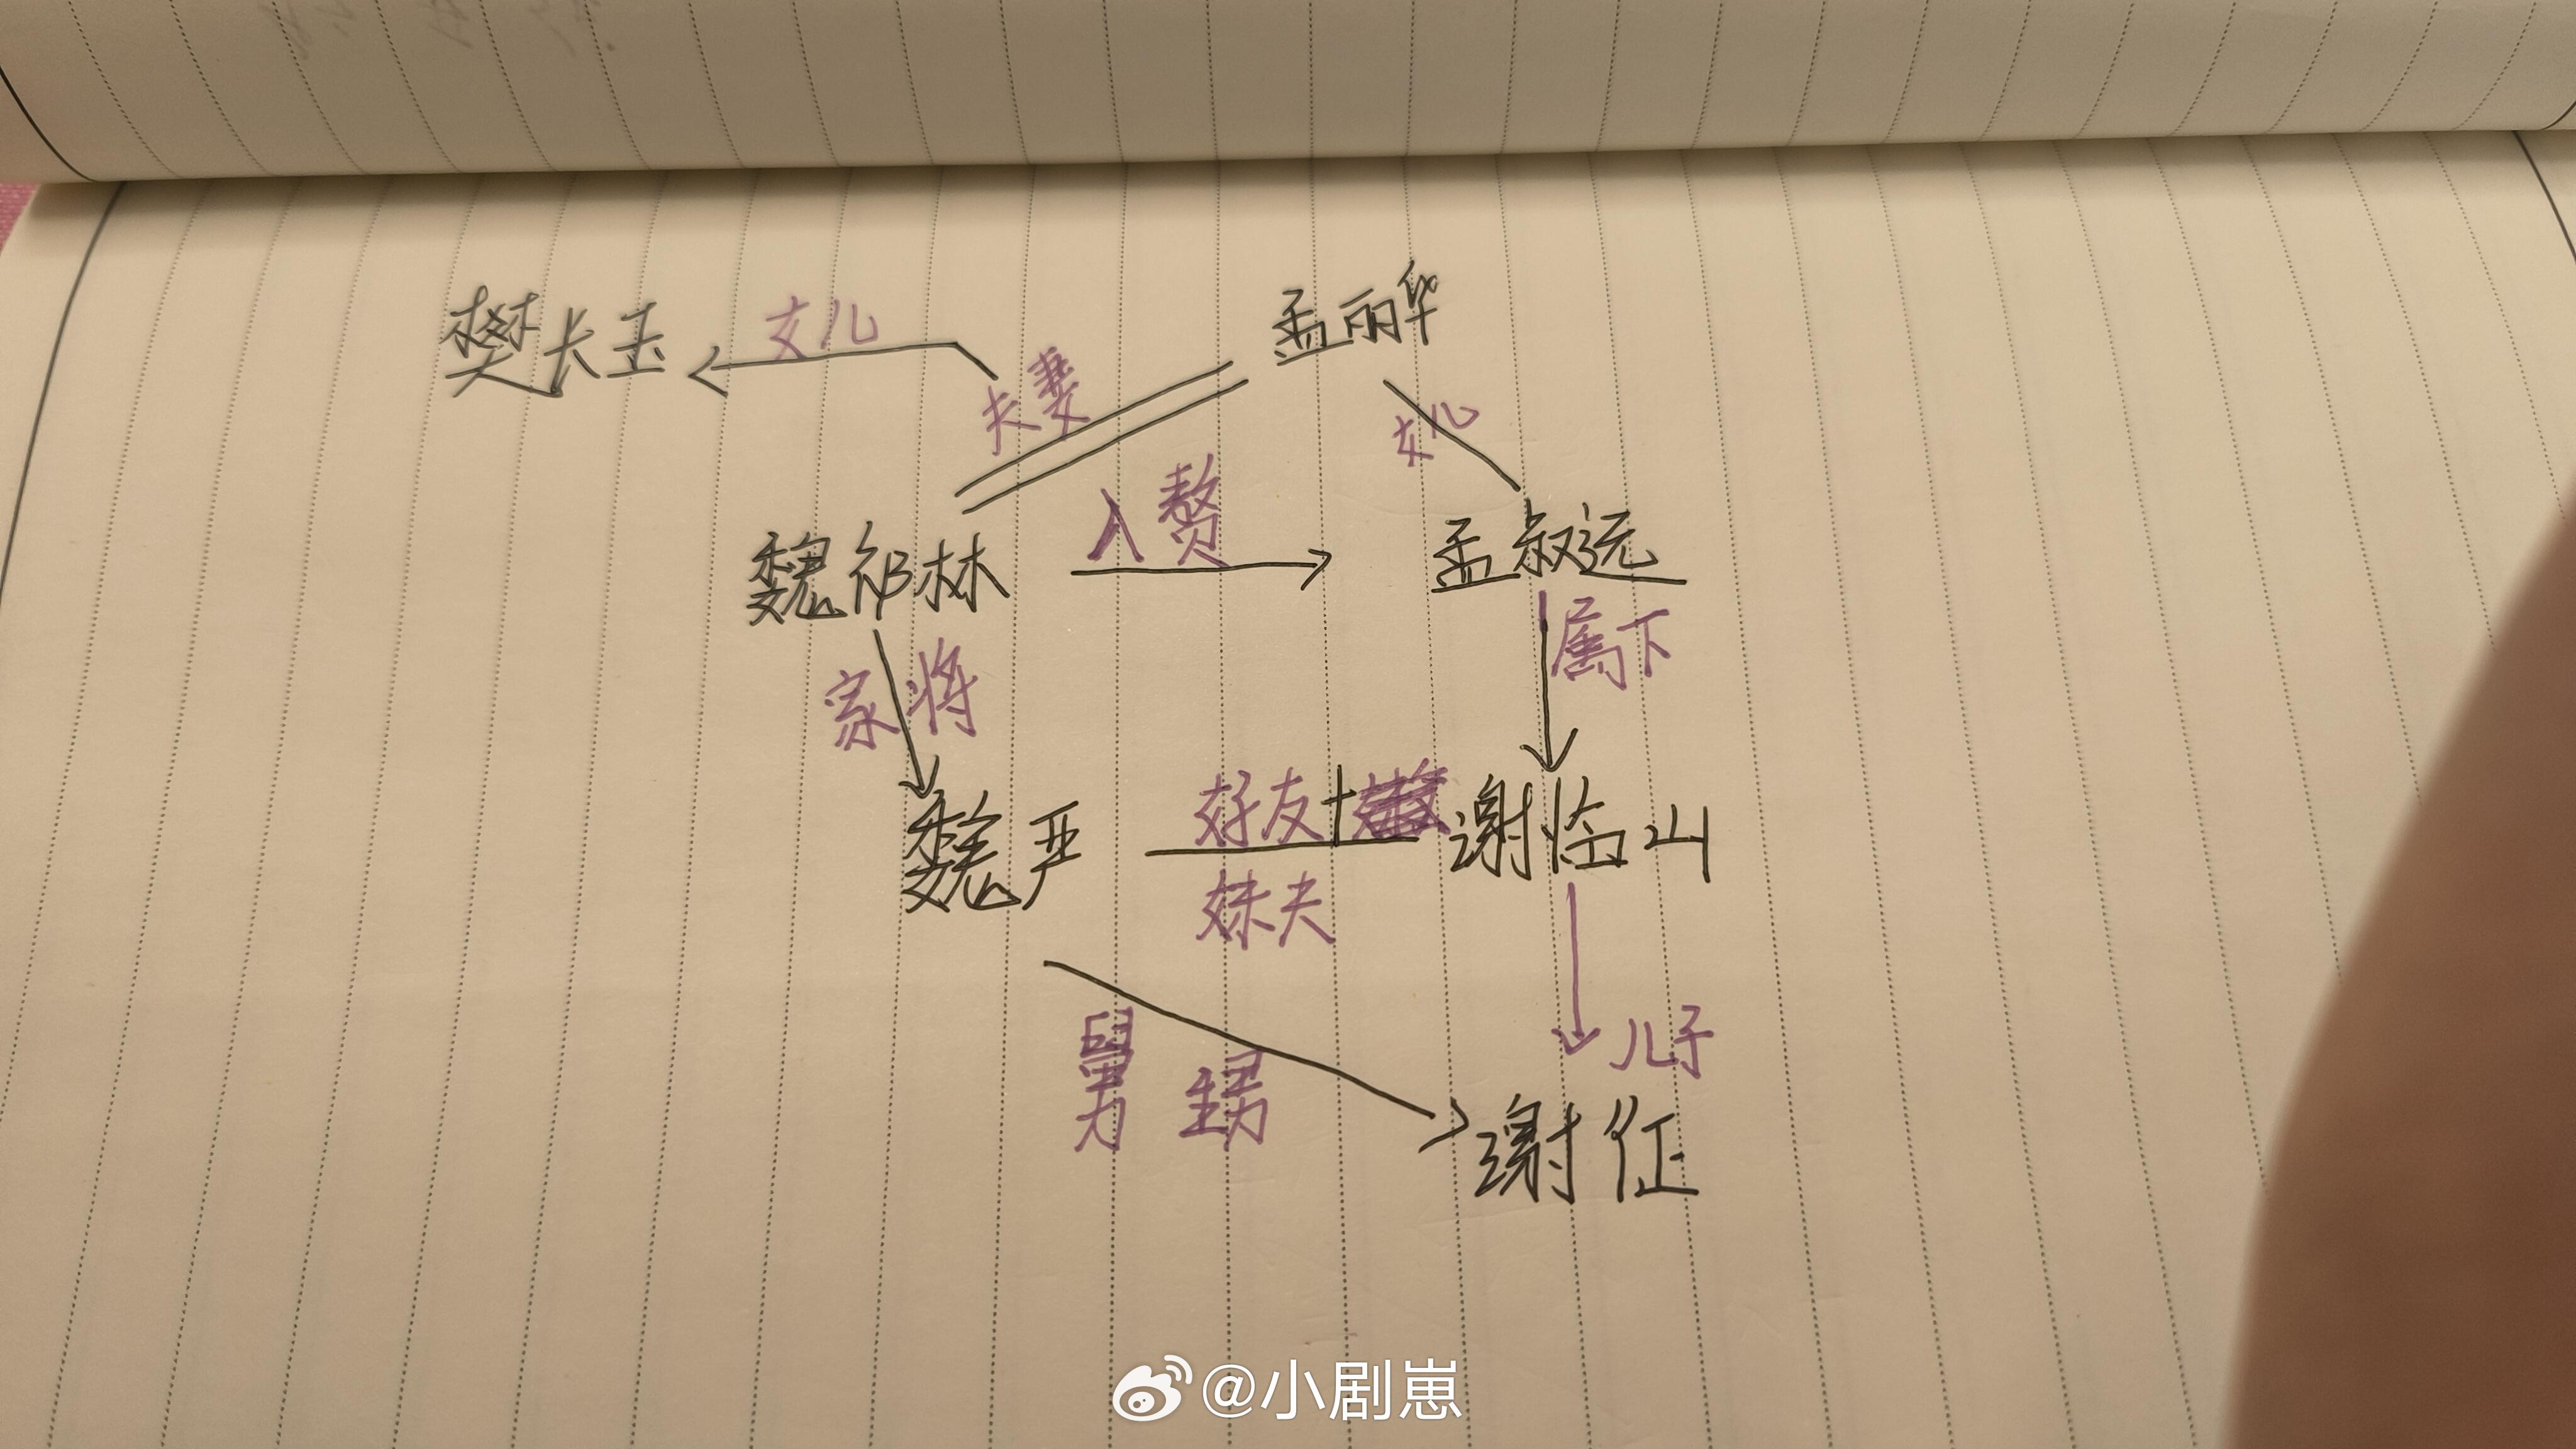 樊长玉 女儿 孟丽华
夫妻 女儿
魏祁林 入赘 孟叔远
家将 属下
魏严 好友+ 谢临山
妹夫
舅甥 儿子
谢征
@小剧崽